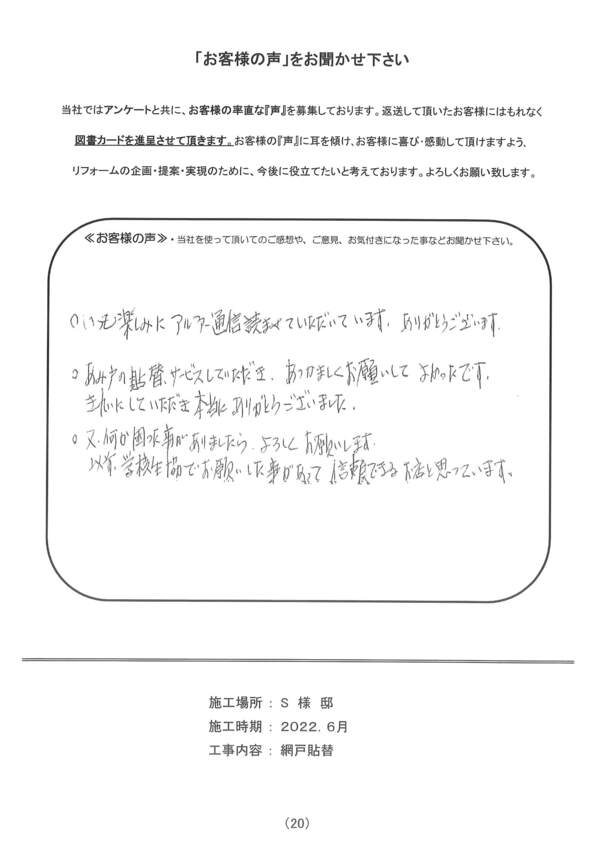 「お客様の声」をお聞かせ下さい
当社ではアンケートと共に、お客様の率直な『声』を募集しております。返送して頂いたお客様にはもれなく
図書カードを進呈させて頂きます。お客様の『声』に耳を傾け、お客様に喜び・感動して頂けますよう、
リフォームの企画・提案・実現のために、今後に役立てたいと考えております。よろしくお願い致します。
≪お客様の声≫・当社を使って頂いてのご感想や、ご意見、お気付きになった事などお聞かせ下さい。
○いつも楽しみに アルファー通信読ませていただいています。ありがとうございます。
○あみ戸の貼替、サービスしていただき、あつかましくお願いして よかったです。
きれいにしていただき本当にありがとうございました。
○又、何か困った事がありましたら、よろしくお願いします。
以前、学校生協でお願いした事があって 信頼できるお店と思っています。
施工場所 : S 様 邸
施工時期 : 2022. 6月
工事内容 : 網戸貼替
(20)